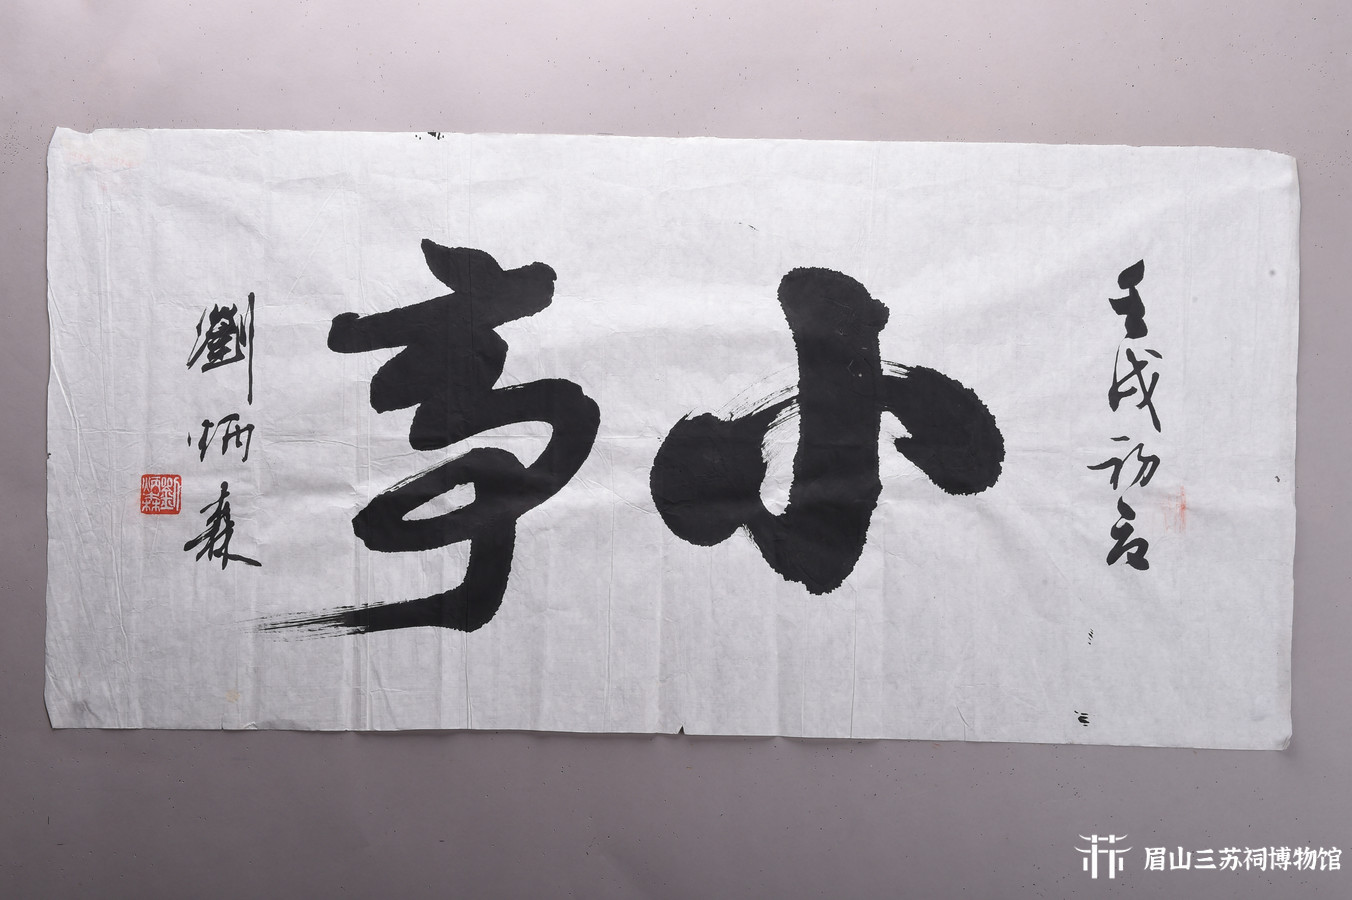 壬戌初
小亭
劉炳森
劉炳森
眉山三苏祠博物馆